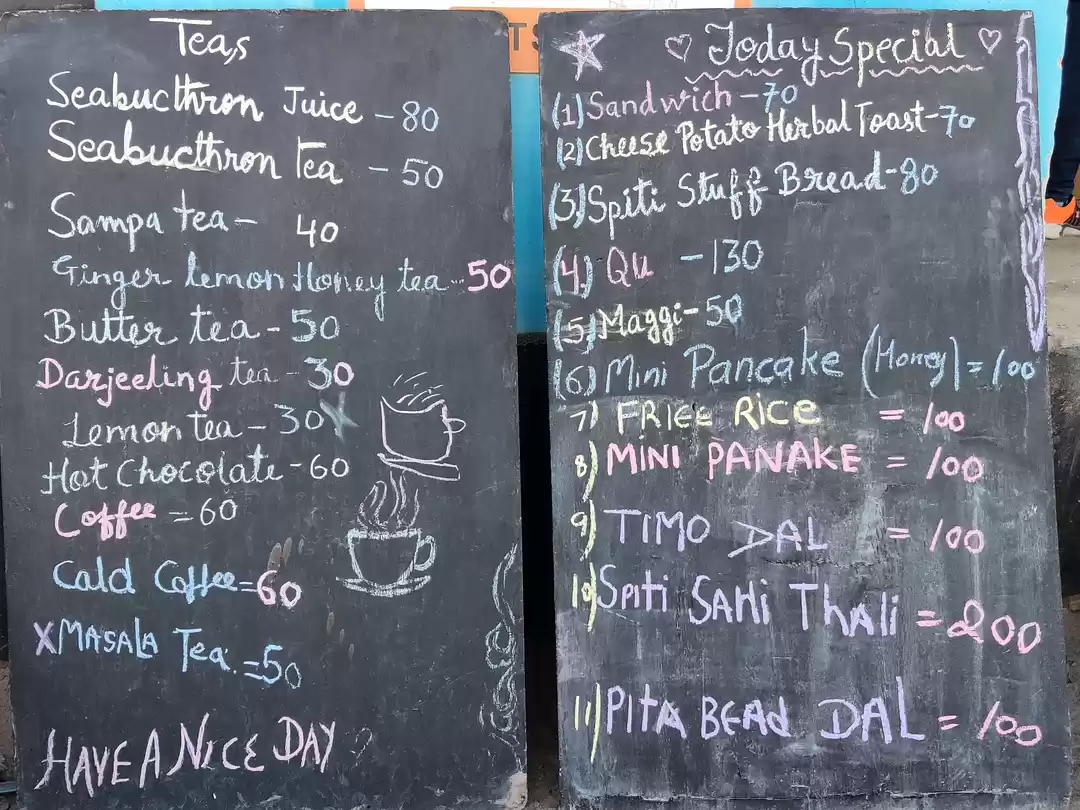 Teas,
Seabucthron Juice - 80
Seabucthron Tea - 50
Sampa tea - 40
Ginger lemon Honey tea - 50
Butter tea - 50
Darjeeling tea - 30
Lemon tea - 30
Hot Chocolate - 60
Coffee = 60
Cald Coffee = 60
X MASALA Tea. = 50
HAVE A NICE DAY
TS
Today Special
(1) Sandwich - 70
(2) Cheese Potato Herbal Toast - 70
(3) Spiti Stuff Bread - 80
(4) Qu - 130
(5) Maggi - 50
(6) Mini Pancake (Honey) = 100
7) FRIEE RICE = 100
8) MINI PANAKE = 100
9) TIMO DAL = 100
10) Spiti SAHi Thali = 200
11) PITA BEAd DAL = 100